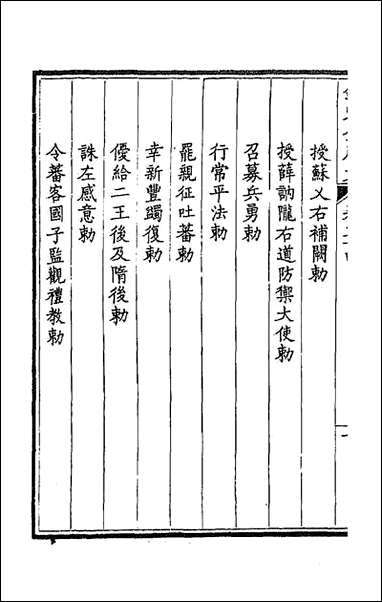 授蘇乂右補闕勅
授薛訥隴右道防禦大使勅
召募兵勇勅
行常平法勅
罷親征吐蕃勅
幸新豐蠲復勅
優給二王後及隋後勅
誅左感意勅
令蕃客國子監觀禮教勅